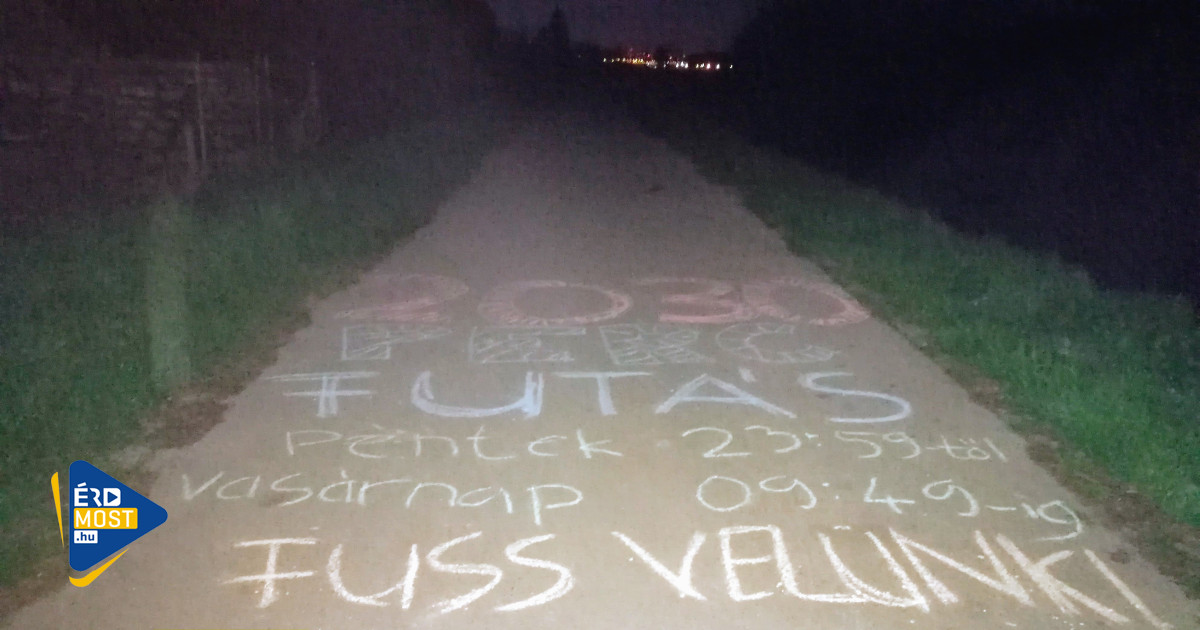 2030
PERC
FUTÁS
Péntek 23:59-től
vasárnap 09:49-ig
FUSS VELÜNK!
ÉRD
MOST
.hu